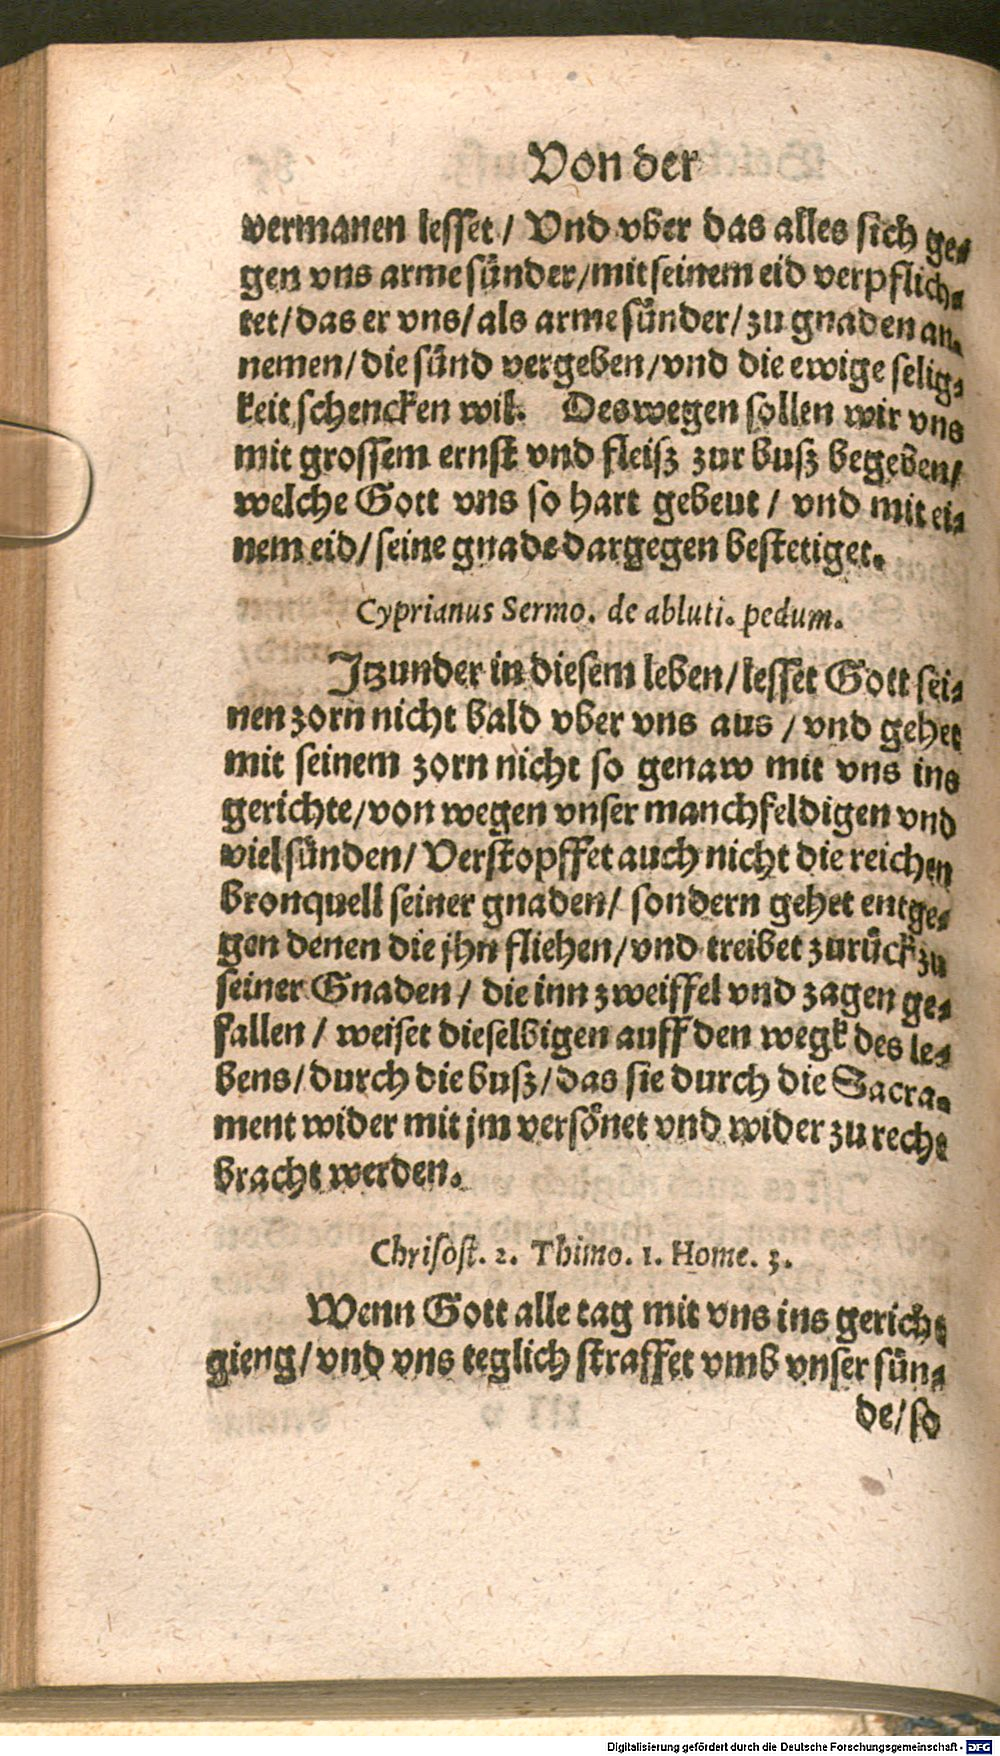 Von der
vermanen lesset / Vnd vber das alles sich ge-
gen vns arme sünder/mit seinem eid verpflich-
tet/das er vns/als arme sünder/zu gnaden an-
nemen/die sünd vergeben/vnd die ewige selig-
keit schencken wil. Deswegen sollen wir vns
mit grossem ernst vnd fleisz zur busz begeben/
welche Gott vns so hart gebeut / vnd mit ei-
nem eid/seine gnade dargegen bestetiget.
Cyprianus Sermo. de abluti. pedum.
Jtzunder in diesem leben/lesset Gott sei-
nen zorn nicht bald vber vns aus / vnd gehet
mit seinem zorn nicht so genaw mit vns ins
gerichte/von wegen vnser manchfeldigen vnd
viel sünden/ Verstopffet auch nicht die reichen
bronquell seiner gnaden/ sondern gehet entge-
gen denen die jhn fliehen/vnd treibet zurück zu
seiner Gnaden / die inn zweiffel vnd zagen ge-
fallen / weiset dieselbigen auff den wegk des le-
bens/durch die busz/das sie durch die Sacra-
ment wider mit jm versönet vnd wider zu recht
bracht werden.
Chrisost. 2. Thimo. 1. Home. 3.
Wenn Gott alle tag mit vns ins gericht
gieng/vnd vns teglich straffet vmb vnser sün-
de/so
Digitalisierung gefördert durch die Deutsche Forschungsgemeinschaft - DFG